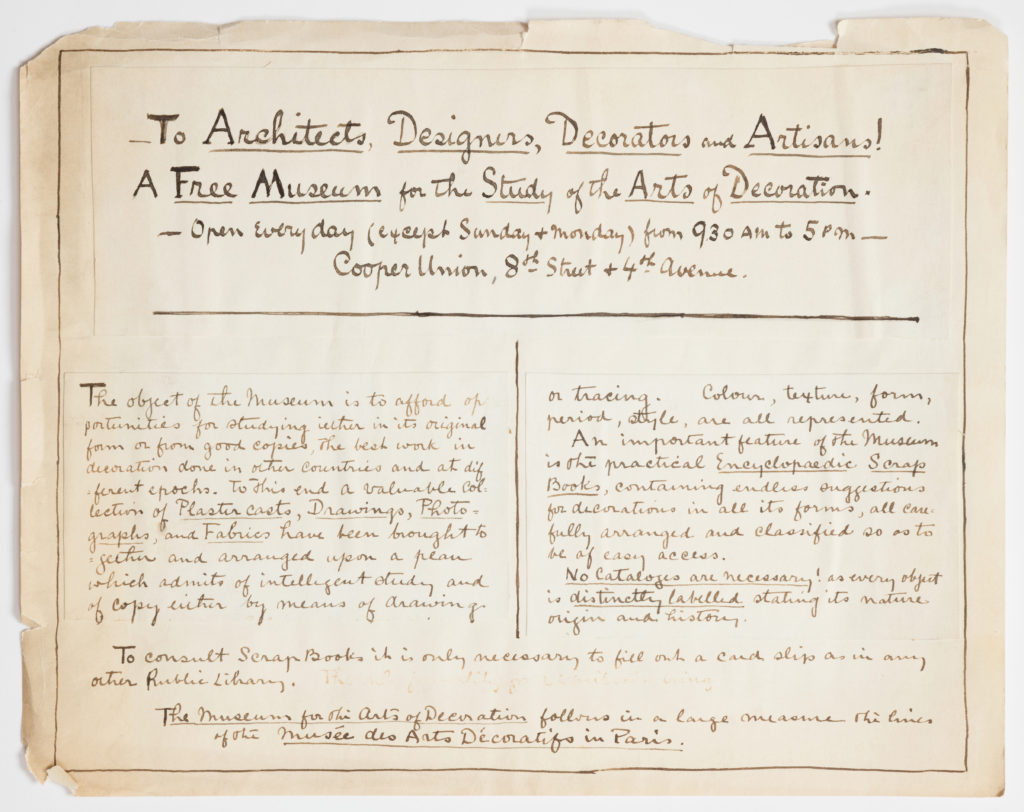 To Architects, Designers, Decorators and Artisans!
A Free Museum for the Study of the Arts of Decoration.
— Open Every day (except Sunday + Monday) from 930 AM to 5 PM —
Cooper Union, 8th Street + 4th Avenue.
The object of the Museum is to afford op
portunities for studying either in its original
form or from good copies, the best work in
decoration done in other countries and at dif
-ferent epochs. To this end a valuable Col-
lection of Plaster casts, Drawings, Photo-
graphs, and Fabrics have been brought to
-gether and arranged upon a plan
which admits of intelligent study and
of copy either by means of drawings
or tracing. Colour, texture, form,
period, style, are all represented.
An important feature of the Museum
is the practical Encyclopaedic Scrap
Books, containing endless suggestions
for decorations in all its forms, all care-
fully arranged and classified so as to
be of easy access.
No Catalogs are necessary! as every object
is distinctly labelled stating its nature
origin and history.
To consult Scrap Books it is only necessary to fill out a card slip as in any
other Public Library.
The Museum for the Arts of Decoration follows in a large measure the lines
of the Musée des Arts Décoratifs in Paris.